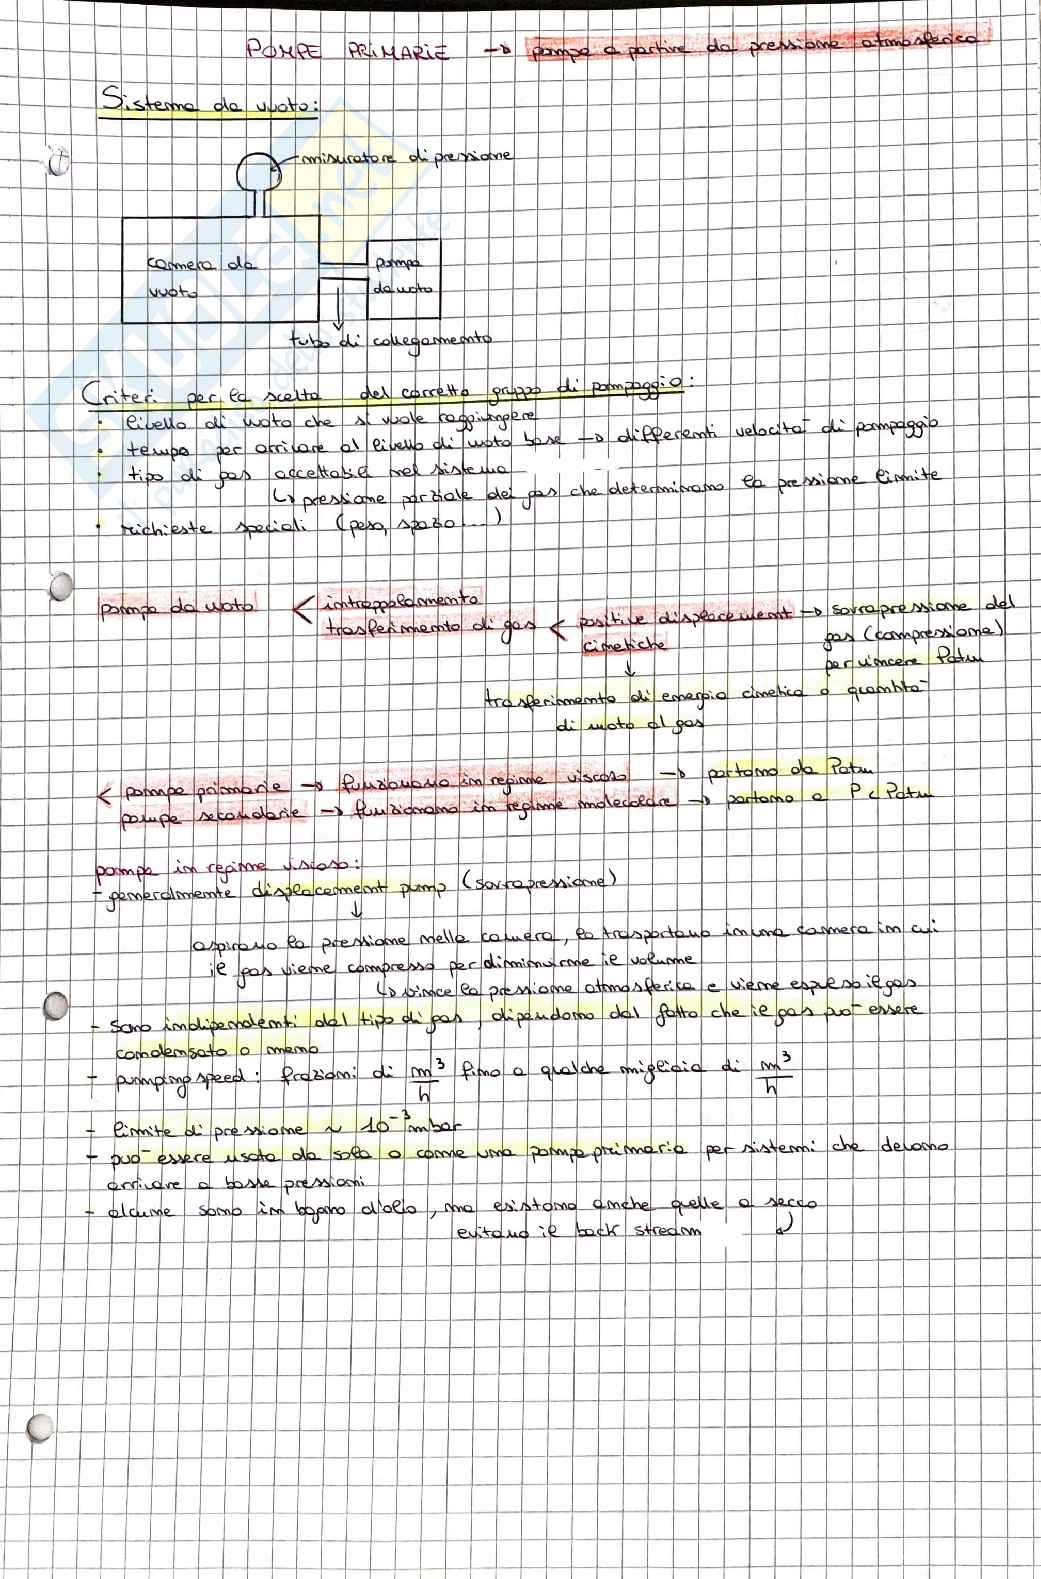 POMPE PRIMARIE → pompe a partire da pressione atmosferica
Sistema da vuoto:
misuratore di pressione
camera da
vuoto
pompa
da vuoto
tubo di collegamento
Criteri per la scelta del corretto gruppo di pompaggio:
• livello di vuoto che si vuole raggiungere
• tempo per arrivare al livello di vuoto base → differenti velocità di pompaggio
• tipo di gas accettabili nel sistema
↳ pressione parziale dei gas che determinano la pressione limite
• richieste speciali (peso, spazio ...)
pompa da vuoto < intrappolamento
trasferimento di gas < positive displacement → sovrapressione del
gas (compressione)
cinetiche
per vincere Patm
↓
trasferimento di energia cinetica o quantità
di moto al gas
< pompe primarie → funzionano in regime viscoso → partono da Patm
pompe secondarie → funzionano in regime molecolare → partono a P < Patm
pompe in regime visioso:
- generalmente displacement pump (sovrapressione)
↓
aspirano la pressione nella camera, la trasportano in una camera in cui
il gas viene compresso per diminuirne il volume
↳ vince la pressione atmosferica e viene espulso il gas
- sono indipendenti dal tipo di gas, dipendono dal fatto che il gas può essere
condensato o meno
- pumping speed: frazioni di m³/h fino a qualche migliaia di m³/h
- limite di pressione ~ 10⁻³ mbar
- può essere usata da sola o come una pompa primaria per sistemi che devono
arrivare a basse pressioni
- alcune sono in bagno d'olio, ma esistono anche quelle a secco
evitano il back stream